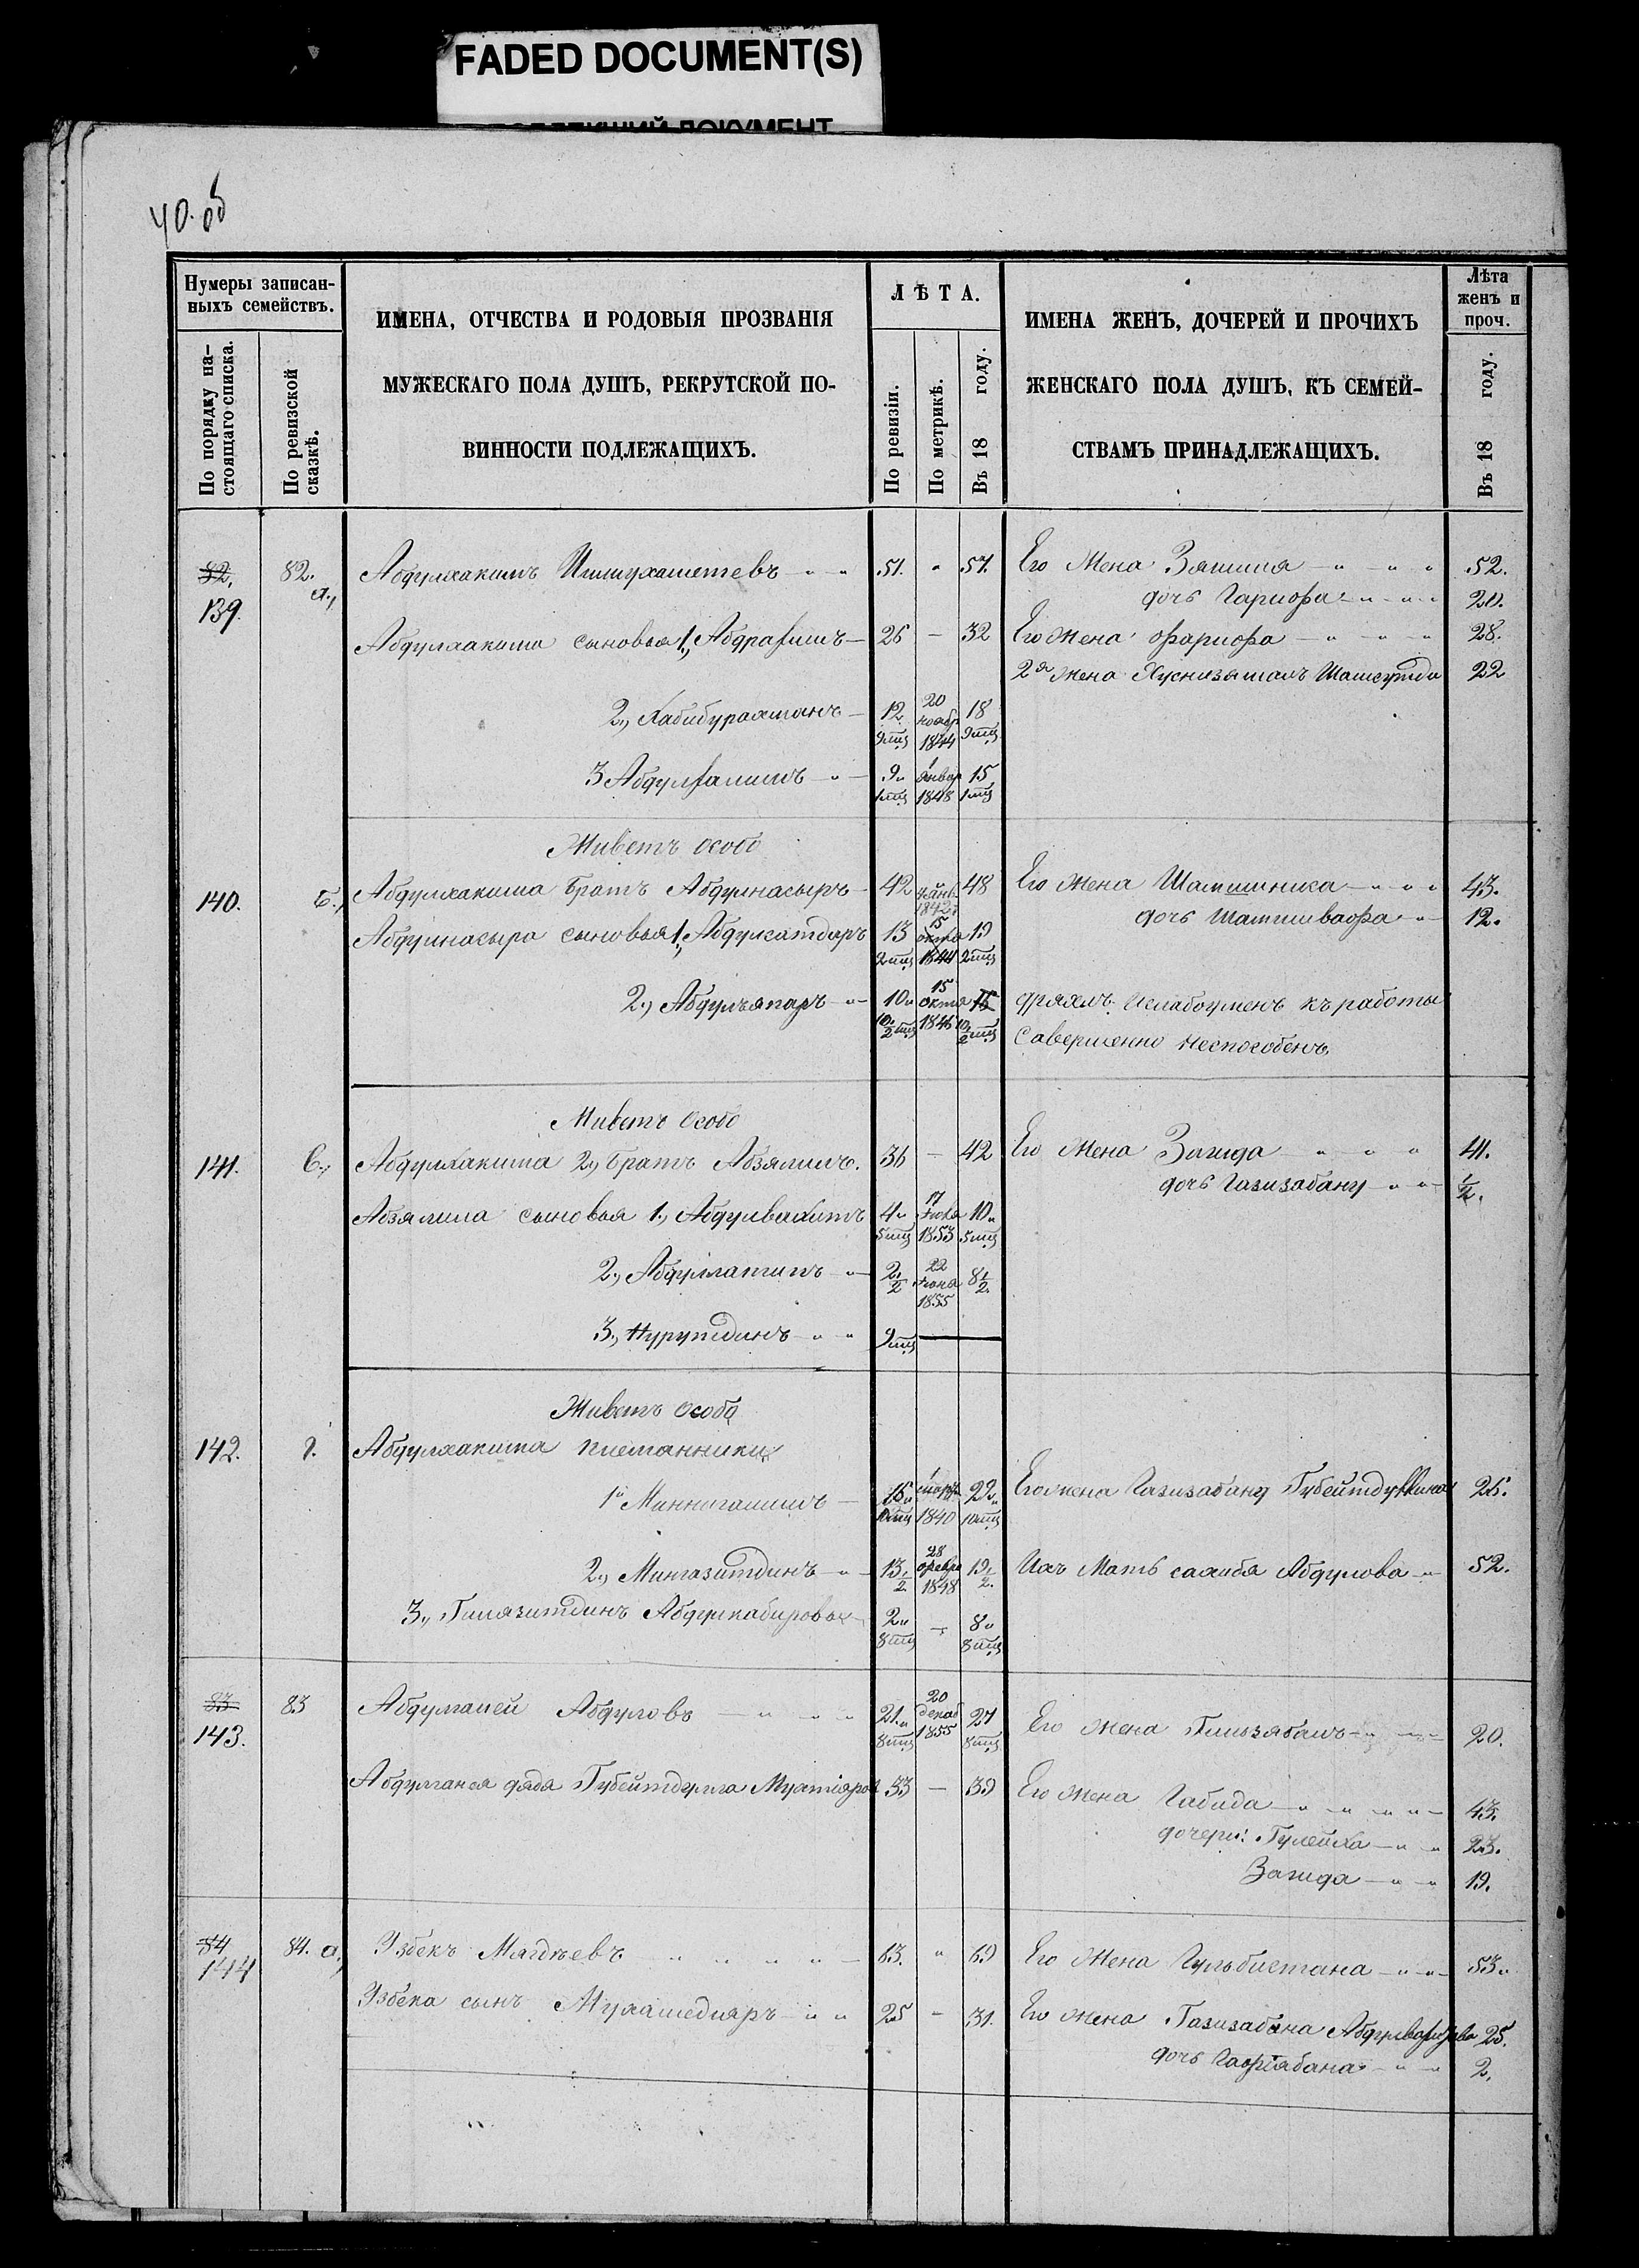 FADED DOCUMENT(S)
40. об
Нумеры записан-
ныхъ семействъ.
По порядку на-
стоящаго списка.
По ревизской
сказкѣ.
ИМЕНА, ОТЧЕСТВА И РОДОВЫЯ ПРОЗВАНІЯ
МУЖЕСКАГО ПОЛА ДУШЪ, РЕКРУТСКОЙ ПО-
ВИННОСТИ ПОДЛЕЖАЩИХЪ.
ЛѢТА.
По ревизіи.
По метрикѣ.
Въ 18 году.
ИМЕНА ЖЕНЪ, ДОЧЕРЕЙ И ПРОЧИХЪ
ЖЕНСКАГО ПОЛА ДУШЪ, КЪ СЕМЕЙ-
СТВАМЪ ПРИНАДЛЕЖАЩИХЪ.
Лѣта
женъ и
проч.
Въ 18 году.
82. 82. а., Абдулхакимъ Ишмухаметевъ 51. 57. Его Жена 52.
139. дочь Гарифа 20.
Абдулхакима сыновья 1., Абдрафикъ 26 — 32 Его Жена Фарифа 28.
2я жена 22
2., Хабибурахманъ 12 9мц 20 ноябр 1844 18 9мц
3 Абдулхалимъ 9 1мц 1 январ 1848 15 1мц
Живетъ особо
140. б., Абдулхакима братъ Абдулнасыръ 42 48 Его Жена 43.
дочь 12.
Абдулнасыра сыновья 1., Абдулсатдаръ 13 2мц 15 октя 1844 19 2мц
2., Абдулъяпаръ 10 15 октя 1846 дряхлъ и слабоуменъ къ работы
Савершенно неспособенъ.
Живетъ особо
141. в., Абдулхакима 2., братъ Абзялилъ. 36 — 42 Его Жена Загида 41.
дочь Газизабану 1/2.
Абзялила сыновья 1., Абдулвахитъ 4 5мц 17 Іюля 1853 10 5мц
2., Абдуллатипъ 2 1/2 22 Іюня 1855 8 1/2.
3., Нурутдинъ 9мц
Живетъ особо
142. г. Абдулхакима племянники
1 Миннигалимъ 16 10мц 1 марта 1840 22 10мц Его жена Газизабану Губейтдуллина 26.
2., Мингазитдинъ 13 1/2 28 февра 1848 19 1/2. Ихъ Мать сахибя Абдулова 52.
3., Гилязитдинъ Абдулкабировы 2 8мц — 8 8мц
83 83 Абдулганей Абдуловъ 21. 8мц 20 декаб 1855 27 8мц Его жена 20.
143.
Абдулганея дядя Губейтдулла 33 — 39 Его жена Габида 43.
дочери: Гулейха 23.
Загида 19.
84 84. а., Узбекъ Магдѣевъ 63. 69 Его Жена Гульбистана 53.
144
Узбека сынъ Мухамедияръ 25 — 31. Его жена Газизабана 25.
дочь 2.